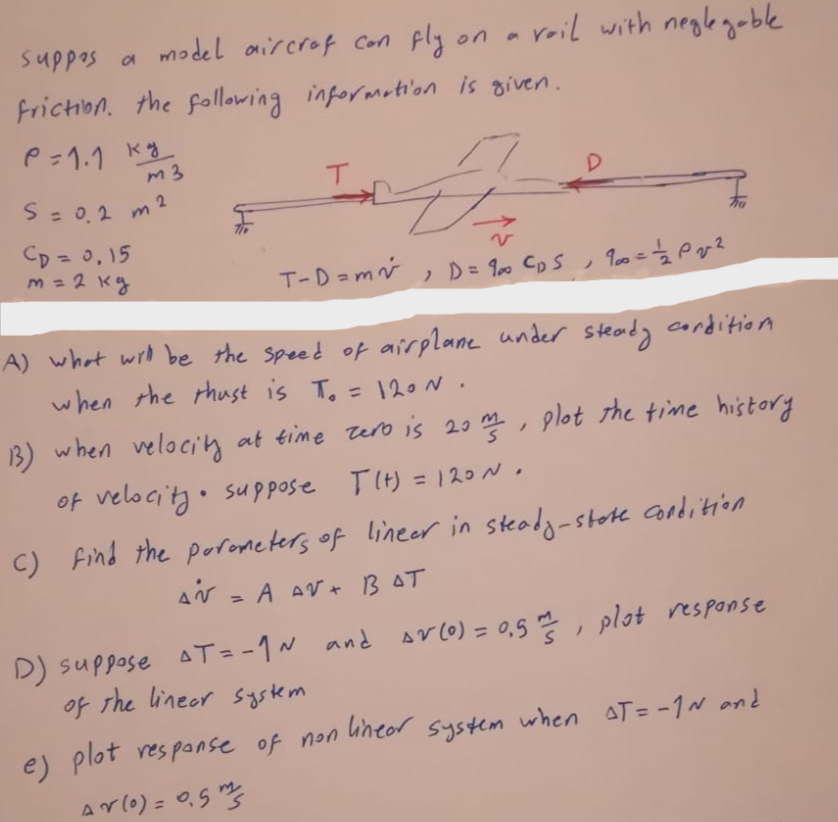 suppos a model aircraf can fly on a rail with neglegable
friction. the following information is given.
ρ = 1.1 kg/m3
S = 0.2 m2
CD = 0.15
m = 2 kg
T
D
v
T-D = mv̇ , D = q∞ CD S , q∞ = 1/2 ρ v2
A) what will be the speed of airplane under steady condition
when the thust is T0 = 120 N .
B) when velocity at time zero is 20 m/s , plot the time history
of velocity. suppose T(t) = 120 N .
C) find the parameters of linear in steady-state condition
Δv̇ = A Δv + B ΔT
D) suppose ΔT = -1 N and Δv(0) = 0.5 m/s , plot response
of the linear system
e) plot response of non linear system when ΔT = -1 N and
Δv(0) = 0.5 m/s